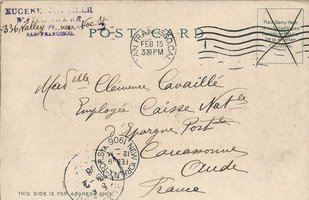 EUGENE
336 Valley St., near Noe St.
SAN FRANCISCO.
POST CARD
SAN FRANCISCO
FEB 15
Place Stamp Here
Mad elle Clémence Cavaillé
Employée Caisse Nat le
d'Epargne Post le
Carcassonne
Aude
France
NEW YORK, N.Y.
STA.
1906
FEB
THIS SIDE IS FOR ADDRESS ONLY.